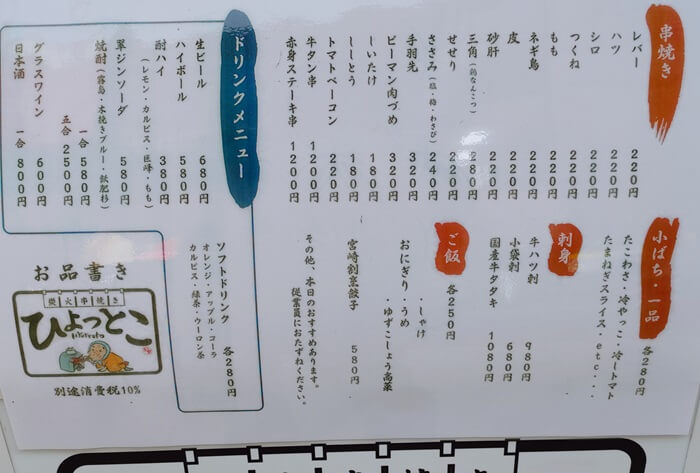 串焼き
レバー 220円
ハツ 220円
シロ 220円
つくね 220円
もも 220円
ネギ鳥 220円
皮 220円
砂肝 220円
三角(鶏なんこつ) 280円
せせり 220円
ささみ(塩・梅・わさび) 240円
手羽先 320円
ピーマン肉づめ 320円
しいたけ 180円
ししとう 180円
トマトベーコン 220円
牛タン串 1200円
赤身ステーキ串 1200円
小ばち・一品
各280円
たこわさ・冷やっこ・冷しトマト
たまねぎスライス・etc...
刺身
牛ハツ刺 980円
小袋刺 680円
国産牛タタキ 1080円
ご飯
各250円
おにぎり・うめ
・しゃけ
・ゆずこしょう高菜
宮崎割烹餃子 580円
その他、本日のおすすめあります。
従業員におたずねください。
ドリンクメニュー
生ビール 680円
ハイボール 580円
酎ハイ 380円
(レモン・カルピス・巨峰・もも)
翠ジンソーダ 580円
焼酎(霧島・木挽きブルー・飫肥杉)
一合 580円
五合 2500円
グラスワイン 600円
日本酒 一合 800円
ソフトドリンク 各280円
オレンジ・アップル・コーラ
カルピス・緑茶・ウーロン茶
お品書き
炭火串焼き
ひょっとこ
別途消費税10%